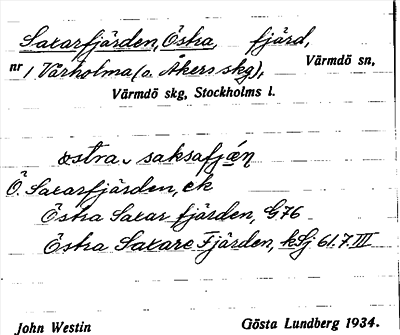 Saxarfjärden, Östra, fjärd,
nr 1 Vårholma (o. Åkers skg), Värmdö sn,
Värmdö skg, Stockholms l.
östra saksafjǽn
Ö. Saxarfjärden, ek
Östra Saxar fjärden, G76
Östra Saxare Fjärden, kSj 61.7.III
John Westin Gösta Lundberg 1934.